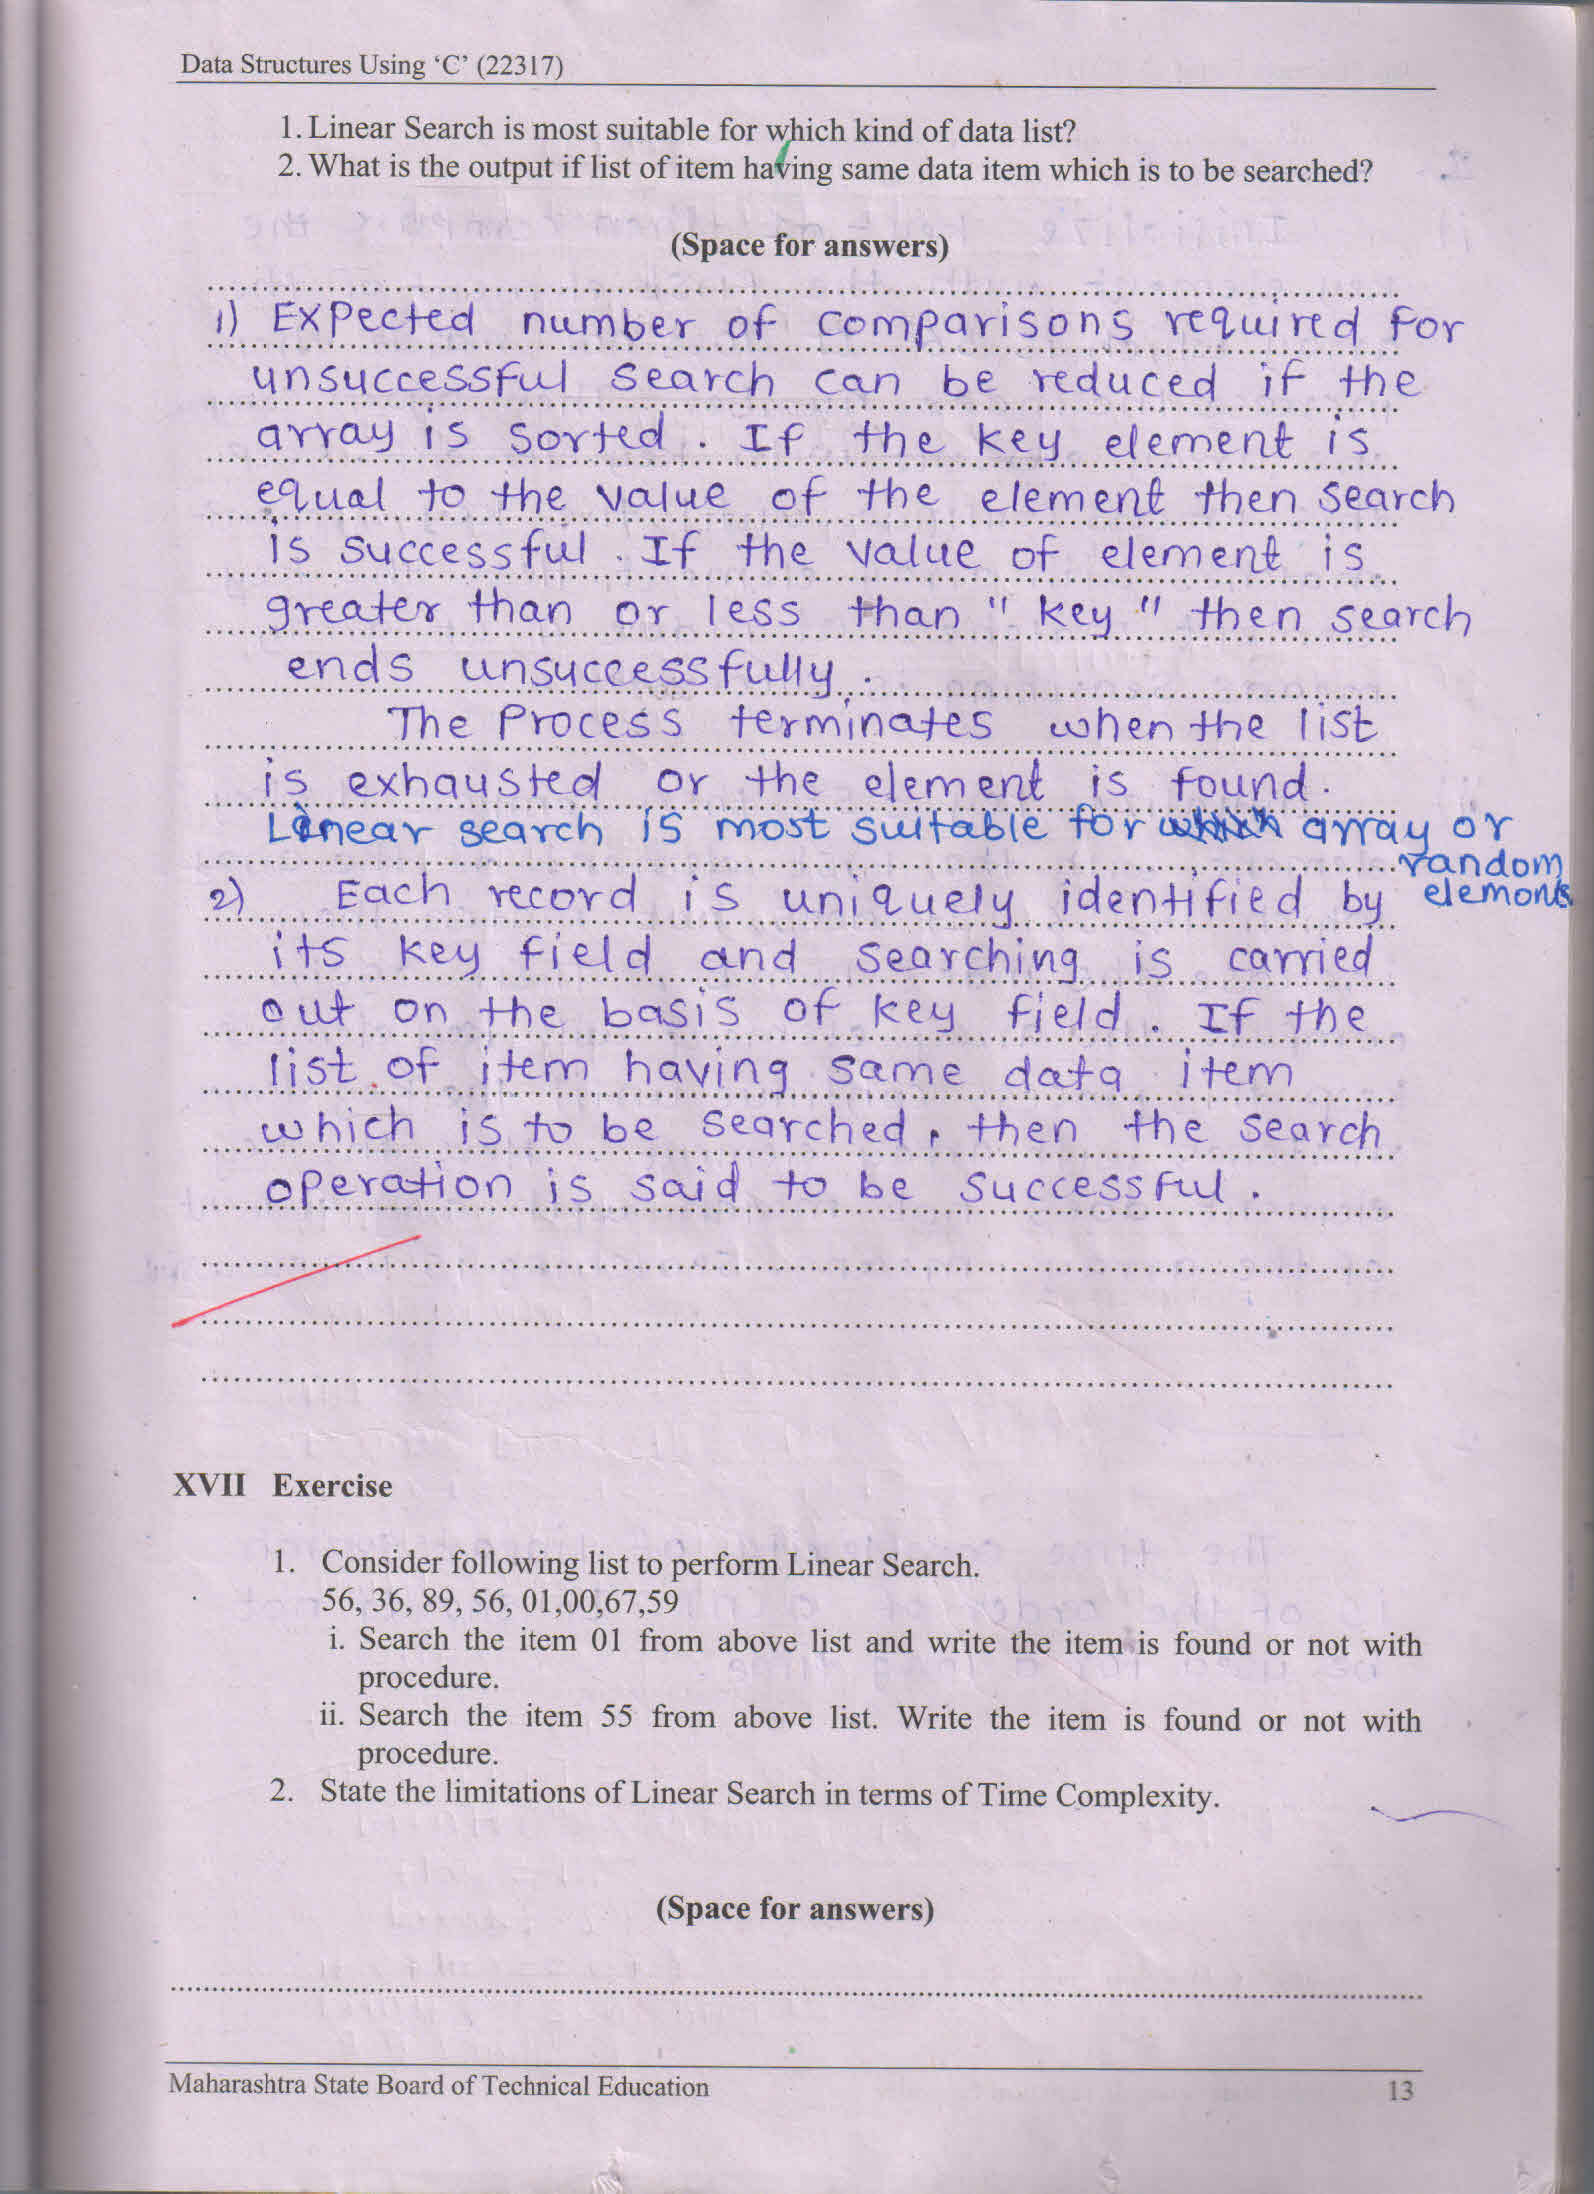 Data Structures Using ‘C’ (22317)
1. Linear Search is most suitable for which kind of data list?
2. What is the output if list of item having same data item which is to be searched?
(Space for answers)
1) Expected number of comparisons required for
unsuccessful search can be reduced if the
array is sorted. If the key element is
equal to the value of the element then search
is successful. If the value of element is
greater than or less than "key" then search
ends unsuccessfully.
The Process terminates when the list
is exhausted or the element is found.
Linear search is most suitable for array or
random
elements
2) Each record is uniquely identified by
its key field and searching is carried
out on the basis of key field. If the
list of item having same data item
which is to be searched, then the search
operation is said to be successful.
XVII Exercise
1. Consider following list to perform Linear Search.
56, 36, 89, 56, 01,00,67,59
i. Search the item 01 from above list and write the item is found or not with
procedure.
ii. Search the item 55 from above list. Write the item is found or not with
procedure.
2. State the limitations of Linear Search in terms of Time Complexity.
(Space for answers)
Maharashtra State Board of Technical Education
13